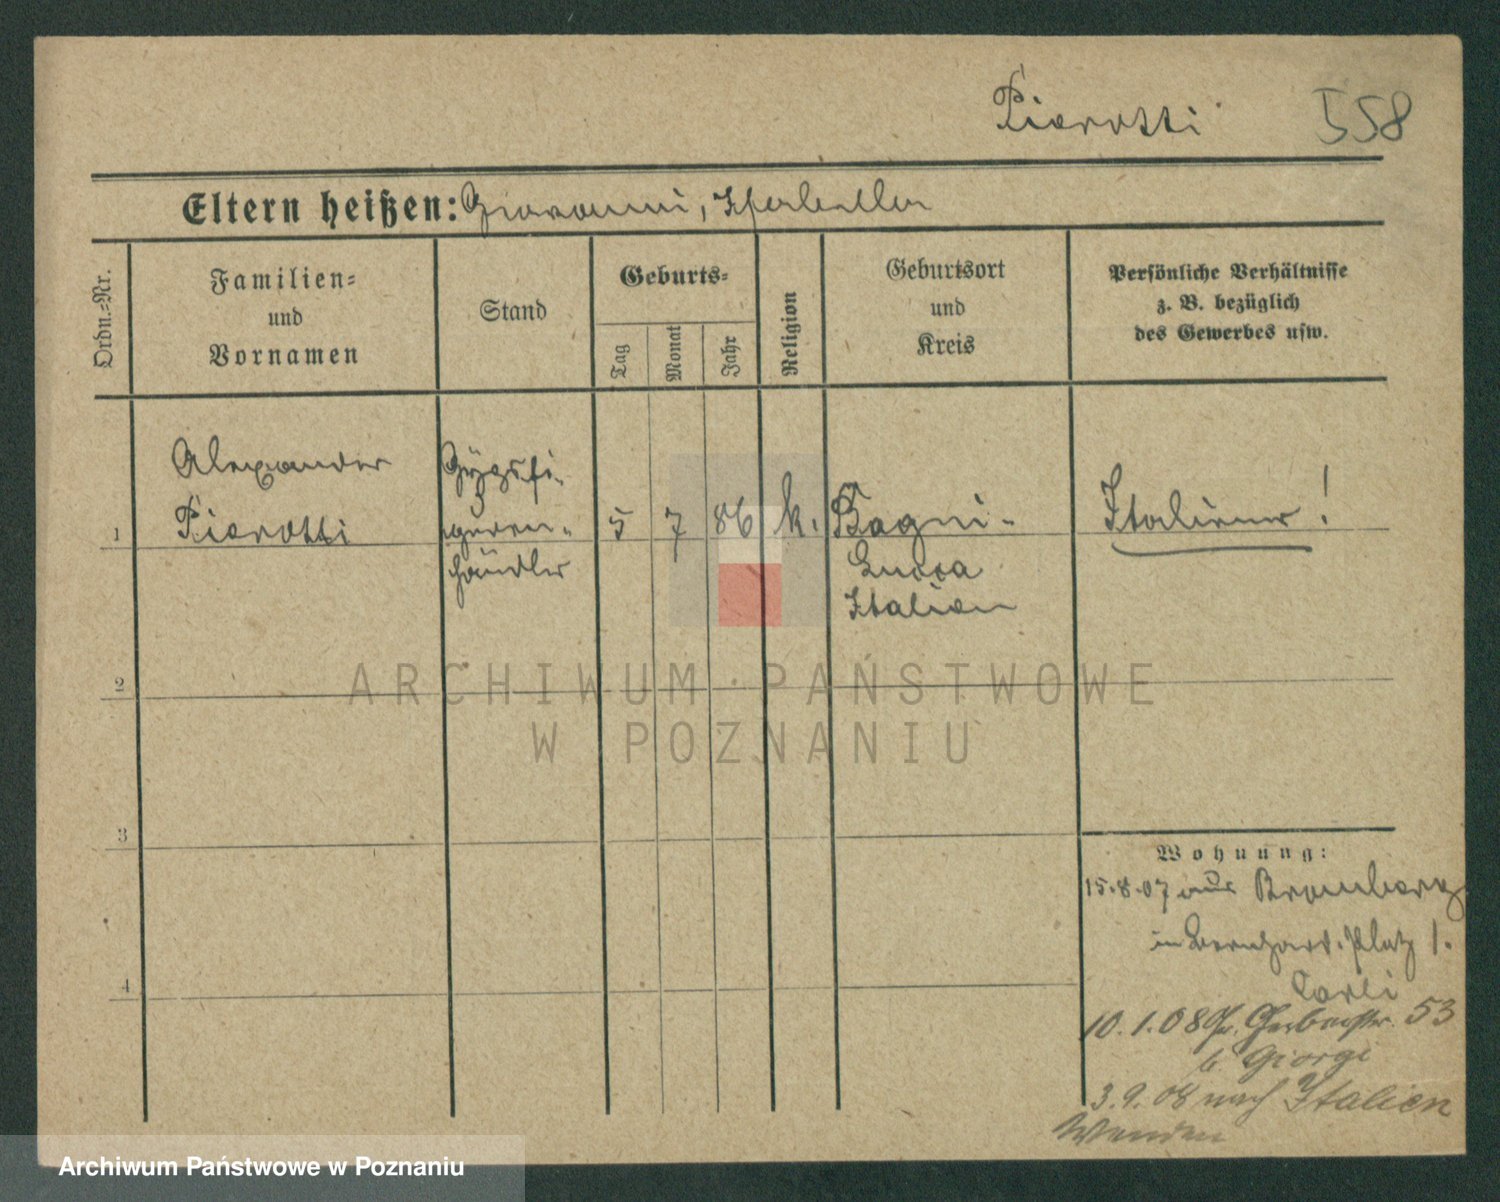 Pierotti 558
Eltern heißen: Giovanni, Isabella
Ordn.=Nr.
Familien=
und
Vornamen
Stand
Geburts=
Tag
Monat
Jahr
Religion
Geburtsort
und
Kreis
Persönliche Verhältnisse
z. B. bezüglich
des Gewerbes usw.
Alexander
Pierotti
Gypsfi-
guren-
händler
1
5 7 86 k.
Bagni-
Lucca
Italien
Italiener!
2
3
4
ARCHIWUM PAŃSTWOWE
W POZNANIU
Wohnung:
15.8.07 aus Bromberg
in Bernhard. Platz 1.
Carli
10.1.08 Gr. Gerberstr. 53
b. Giorgi
3.9.08 nach Italien
Archiwum Państwowe w Poznaniu